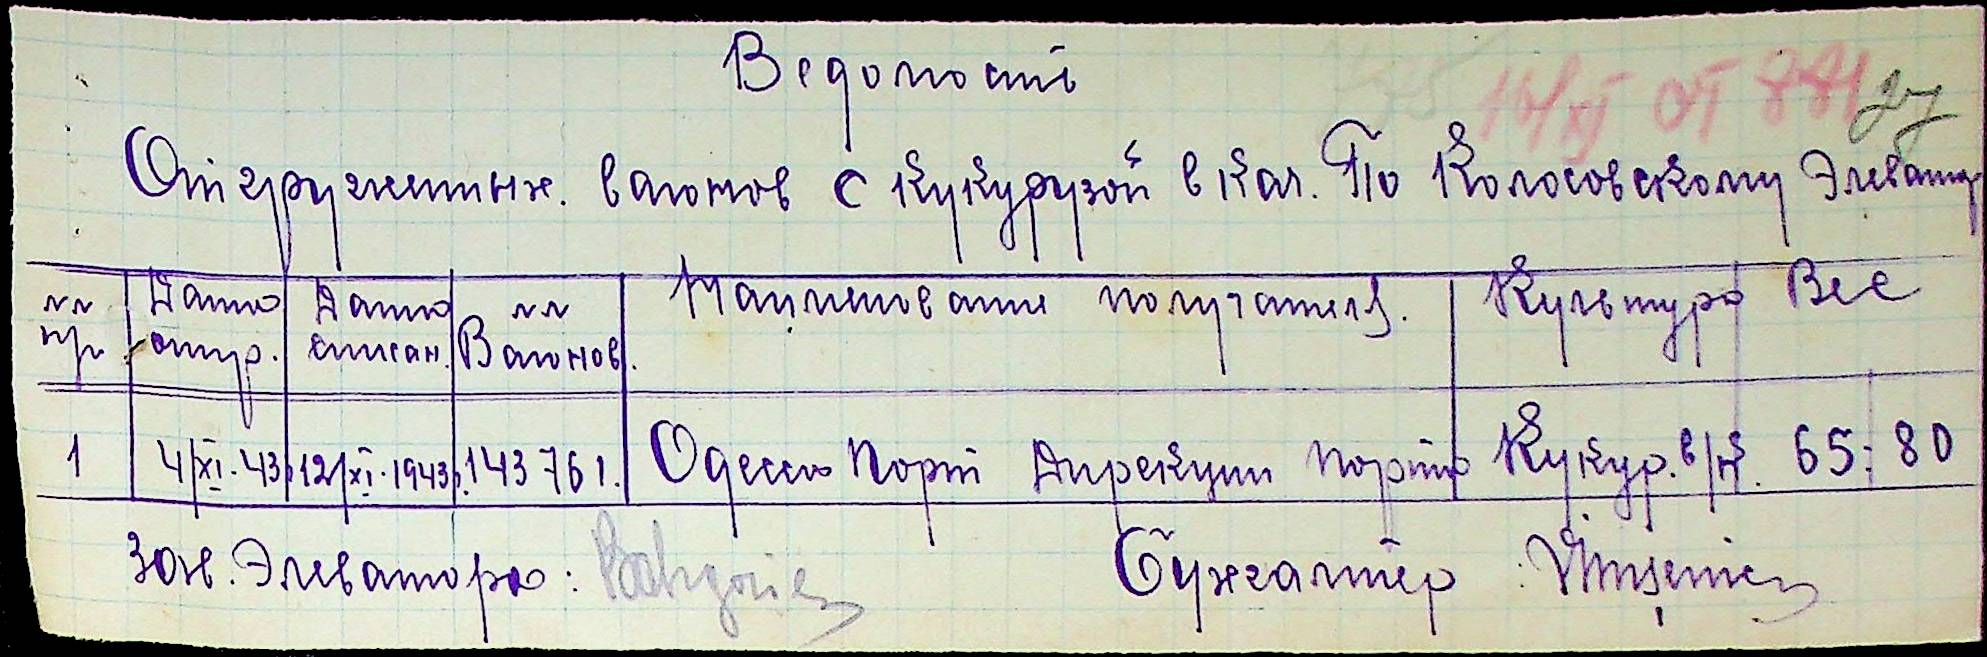 Ведомость
14/XI от 881 27
Отгруженных. вагонов с кукурузой в кач. По Колосовскому Элеватор
№№ пр. Дата отгр. Дата списан. №№ Вагонов. Наименование получателя. Культура Вес
1 4/XI.43. 12/XI.1943. 143761. Одесса Порт Дирекции Порта Кукур. в/к. 65:80
Зав. Элеватора:
Бухгалтер: